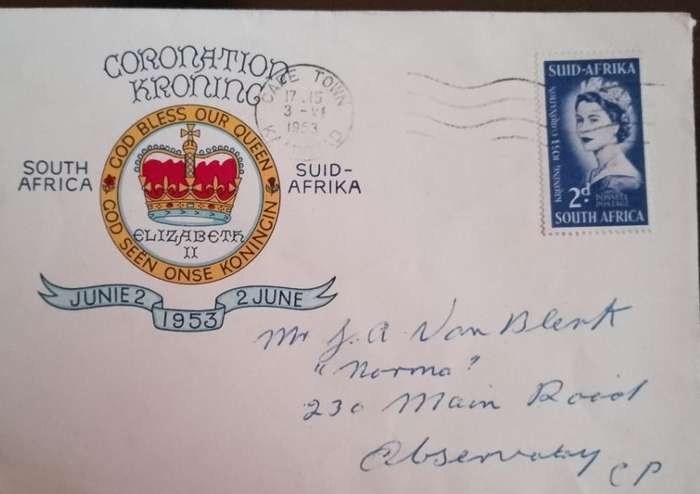 CORONATION
KRONING
GOD BLESS OUR QUEEN
SOUTH AFRICA
SUID-AFRIKA
ELIZABETH
II
GOD SEËN ONSE KONINGIN
JUNIE 2
1953
2 JUNE
CAPE TOWN
17.15
3-VI
1953
SUID-AFRIKA
KRONING 1953 CORONATION
2d.
POSSEEL
POSTAGE
SOUTH AFRICA
Mr J. A. Van Blerk
"Norma"
230 Main Road
Observatory
CP